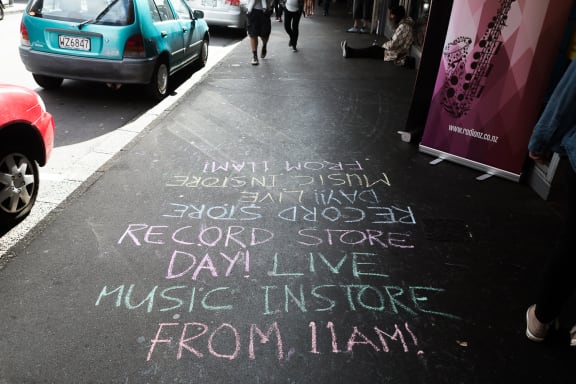 WZ6847
www.radionz.co.nz
RECORD STORE
DAY!! LIVE
MUSIC INSTORE
FROM 11AM!
RECORD STORE
DAY! LIVE
MUSIC INSTORE
FROM 11AM!